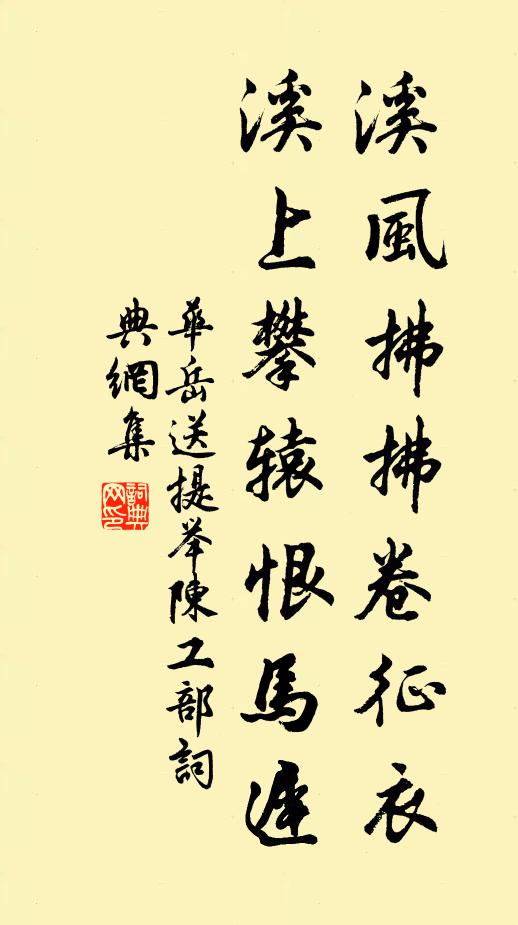 溪風拂拂卷征衣
溪上攀辕恨馬遲
華岳送提举陳工部詞
典網集
詞典
网印